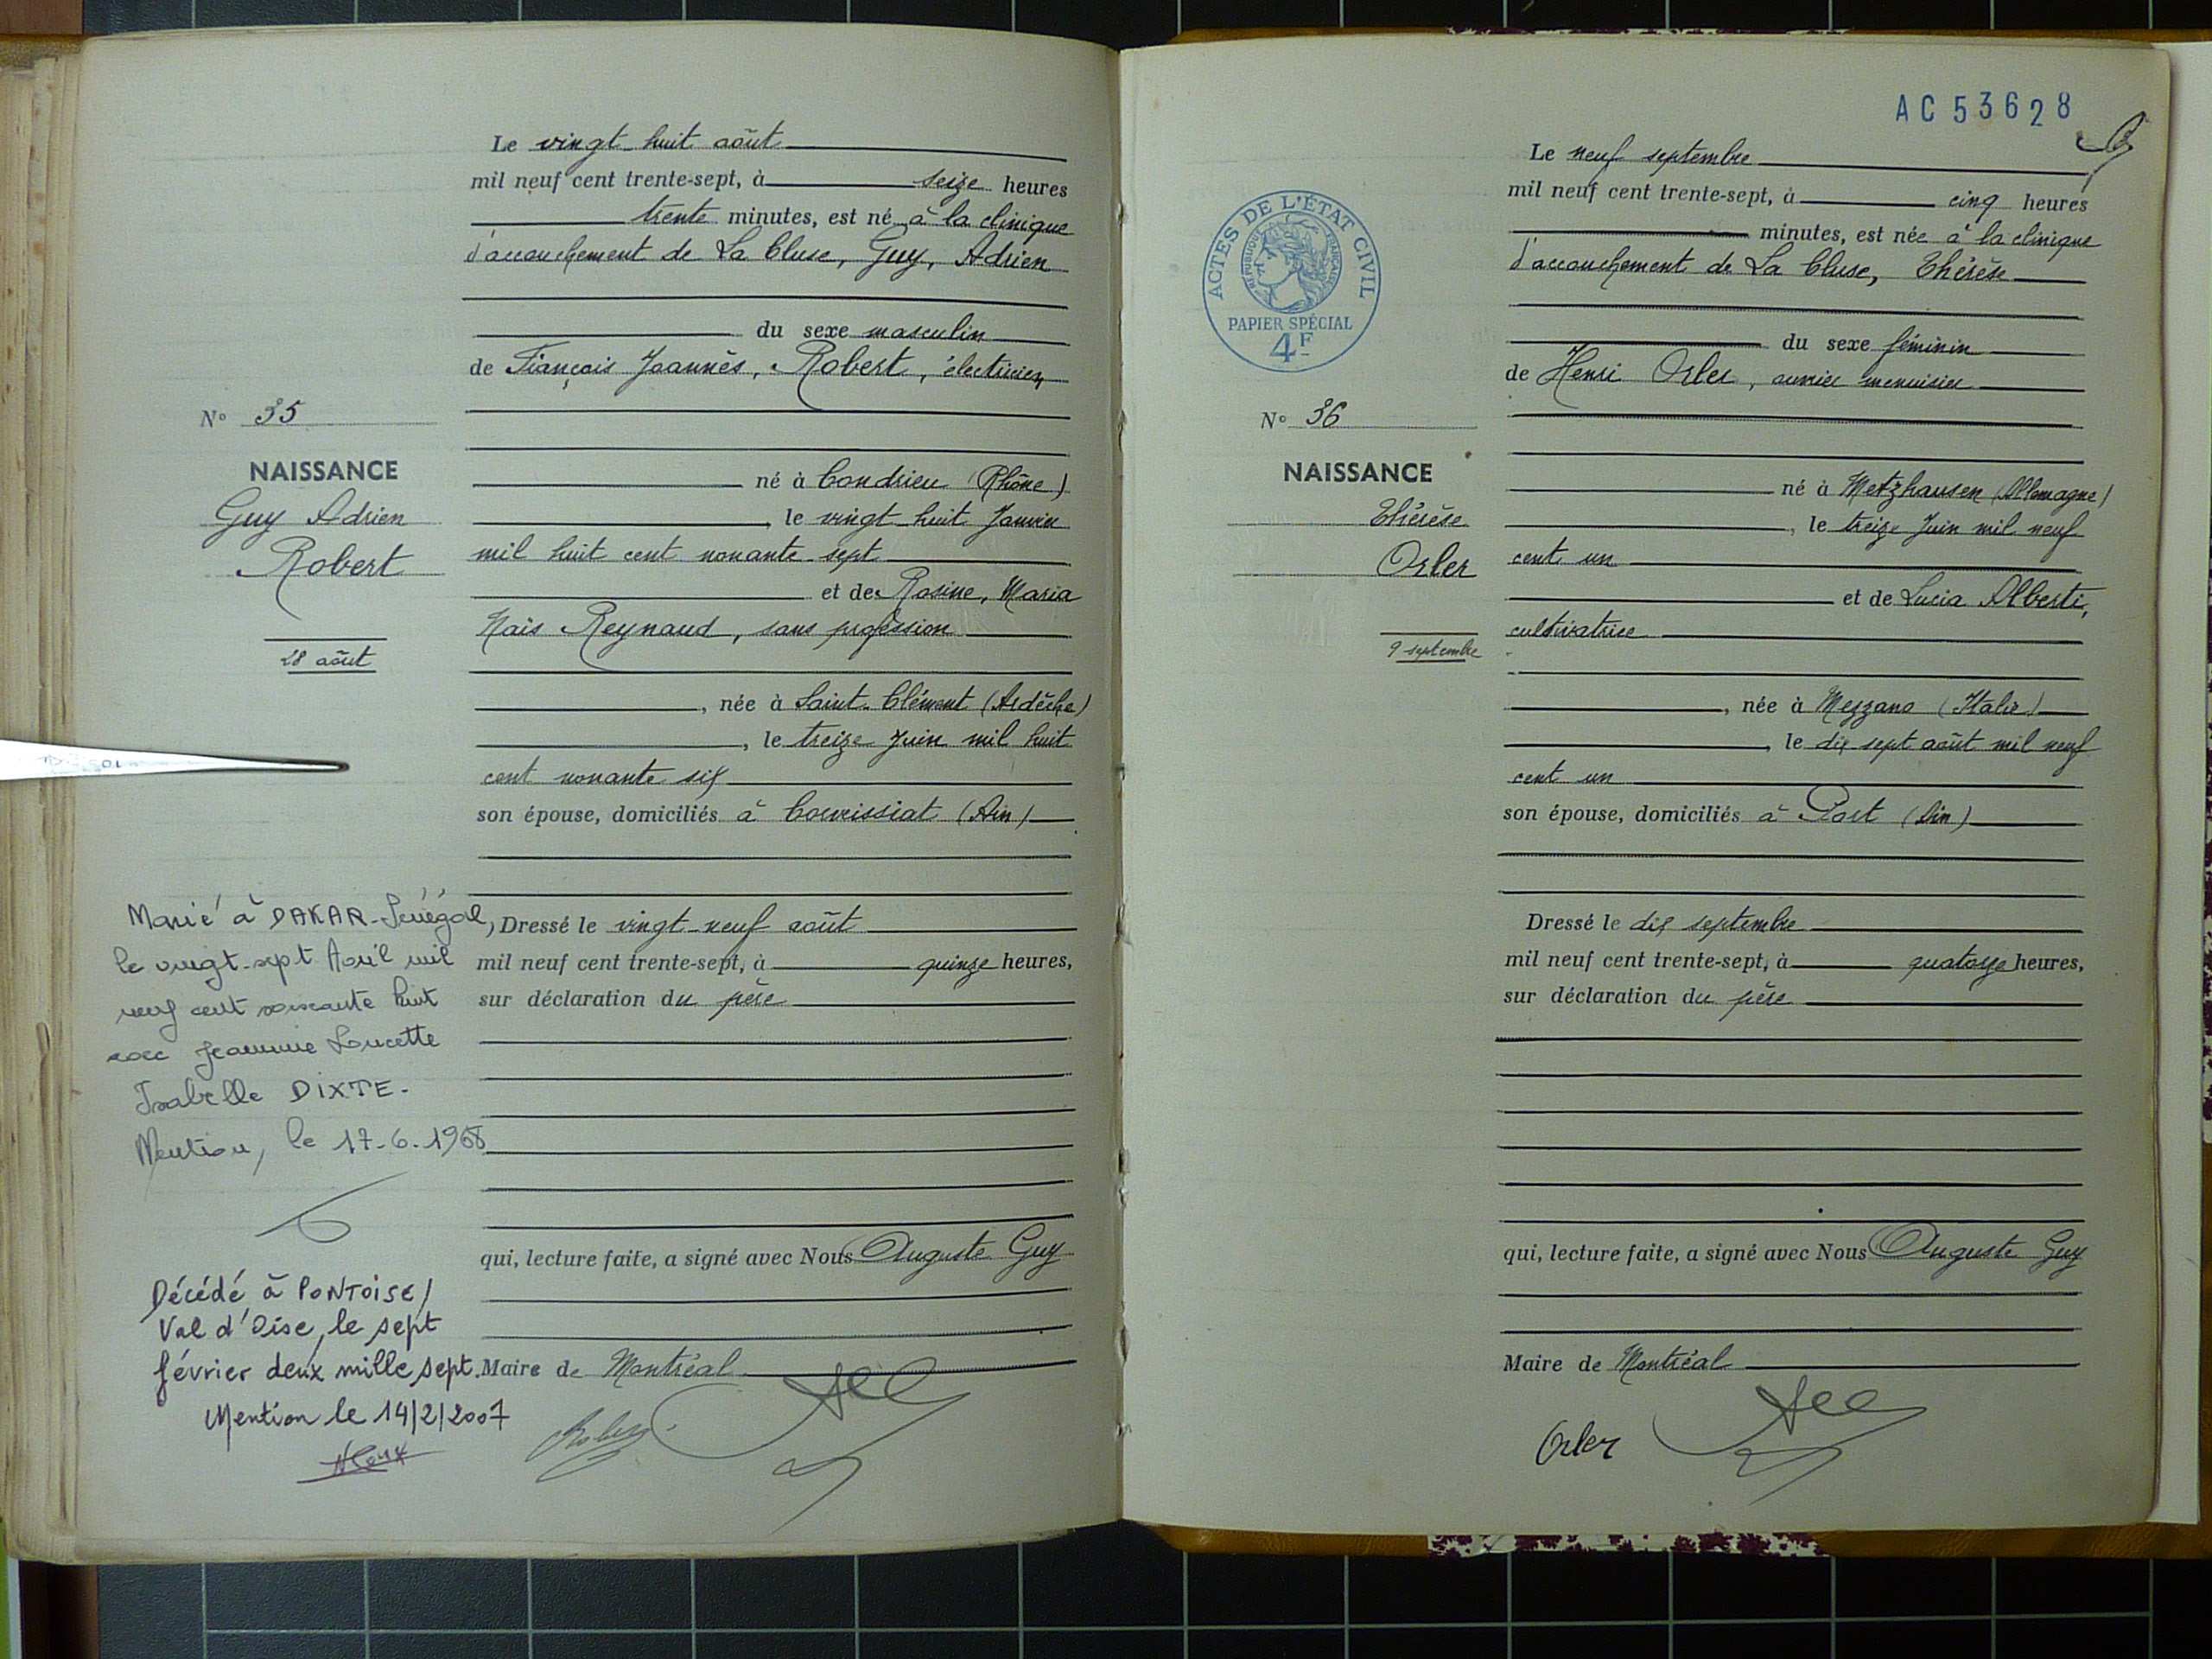 Le vingt-huit août
mil neuf cent trente-sept, à seize heures
trente minutes, est né à la clinique
d'accouchement de La Cluse, Guy, Adrien
du sexe masculin
de François Joannès, Robert, électricien,
né à Condrieu (Rhône)
, le vingt-huit Janvier
mil huit cent nonante-sept
et de Rosine, Maria
Naïs Reynaud, sans profession
, née à Saint-Clément (Ardèche)
, le treize Juin mil huit
cent nonante six
son épouse, domiciliés à Corveissiat (Ain)
Dressé le vingt-neuf août
mil neuf cent trente-sept, à quinze heures,
sur déclaration du père
qui, lecture faite, a signé avec Nous Auguste Guy
Maire de Montréal
Robert
N° 35
NAISSANCE
Guy Adrien
Robert
28 août
Marié à DAKAR-Sénégal,
le vingt-sept Avril mil
neuf cent soixante huit
avec Jeannine Lucette
Isabelle DIXTE.
Mention, le 17-6-1968
Décédé à PONTOISE/
Val d'Oise, le sept
février deux mille sept.
Mention le 14/2/2007
AC 53628
Le neuf septembre
mil neuf cent trente-sept, à cinq heures
minutes, est née à la clinique
d'accouchement de La Cluse, Thérèse
du sexe féminin
de Henri Orler, ouvrier menuisier
né à Metzhausen (Allemagne)
, le treize Juin mil neuf
cent un
et de Lucia Alberti,
cultivatrice
, née à Mezzano (Italie)
, le dix sept août mil neuf
cent un
son épouse, domiciliés à Port (Ain)
Dressé le dix septembre
mil neuf cent trente-sept, à quatorze heures,
sur déclaration du père
qui, lecture faite, a signé avec Nous Auguste Guy
Maire de Montréal
Orler
ACTES DE L'ÉTAT CIVIL
RÉPUBLIQUE FRANÇAISE
PAPIER SPÉCIAL
4F
N° 36
NAISSANCE
Thérèse
Orler
9 septembre